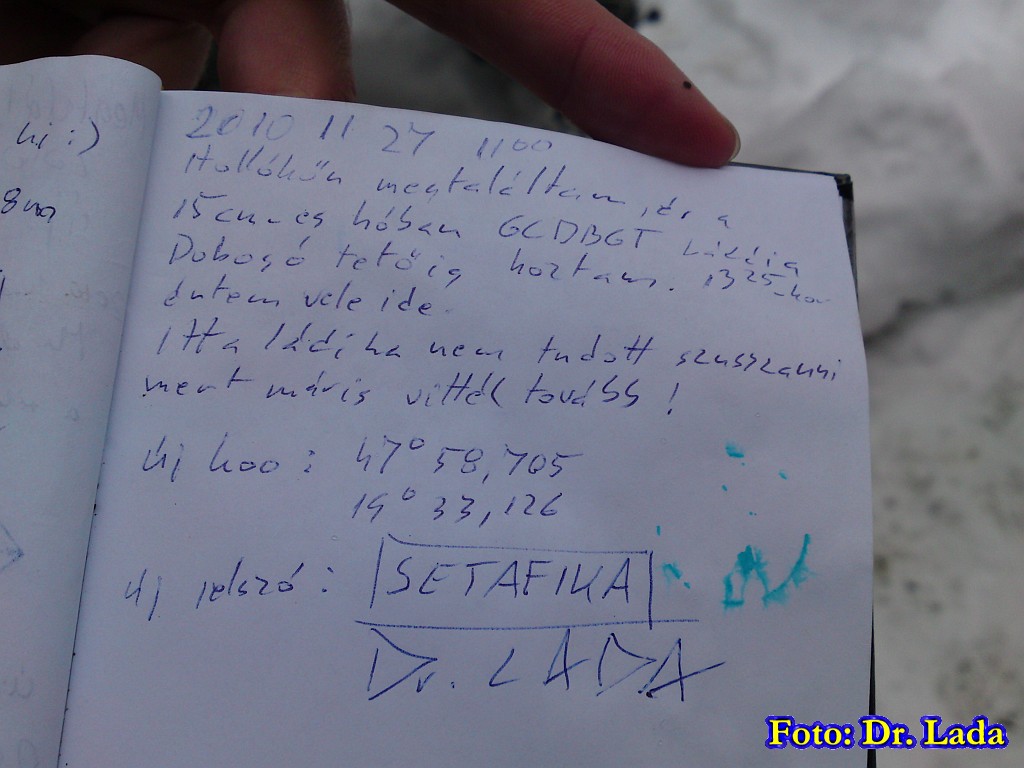 hi :)
2010 11 27 1100
Hollókőn megtaláltam, és a
15 cm-es hóban GCDBGT ládáig
Dobogó tetőig hoztam. 1325-kor
értem vele ide.
Itt a ládika nem tudott szusszanni
mert máris vitték tovább!
új koo: 47° 58,705
19° 33,126
új jelszó: SETAFIKA
Dr. LADA
Foto: Dr. Lada